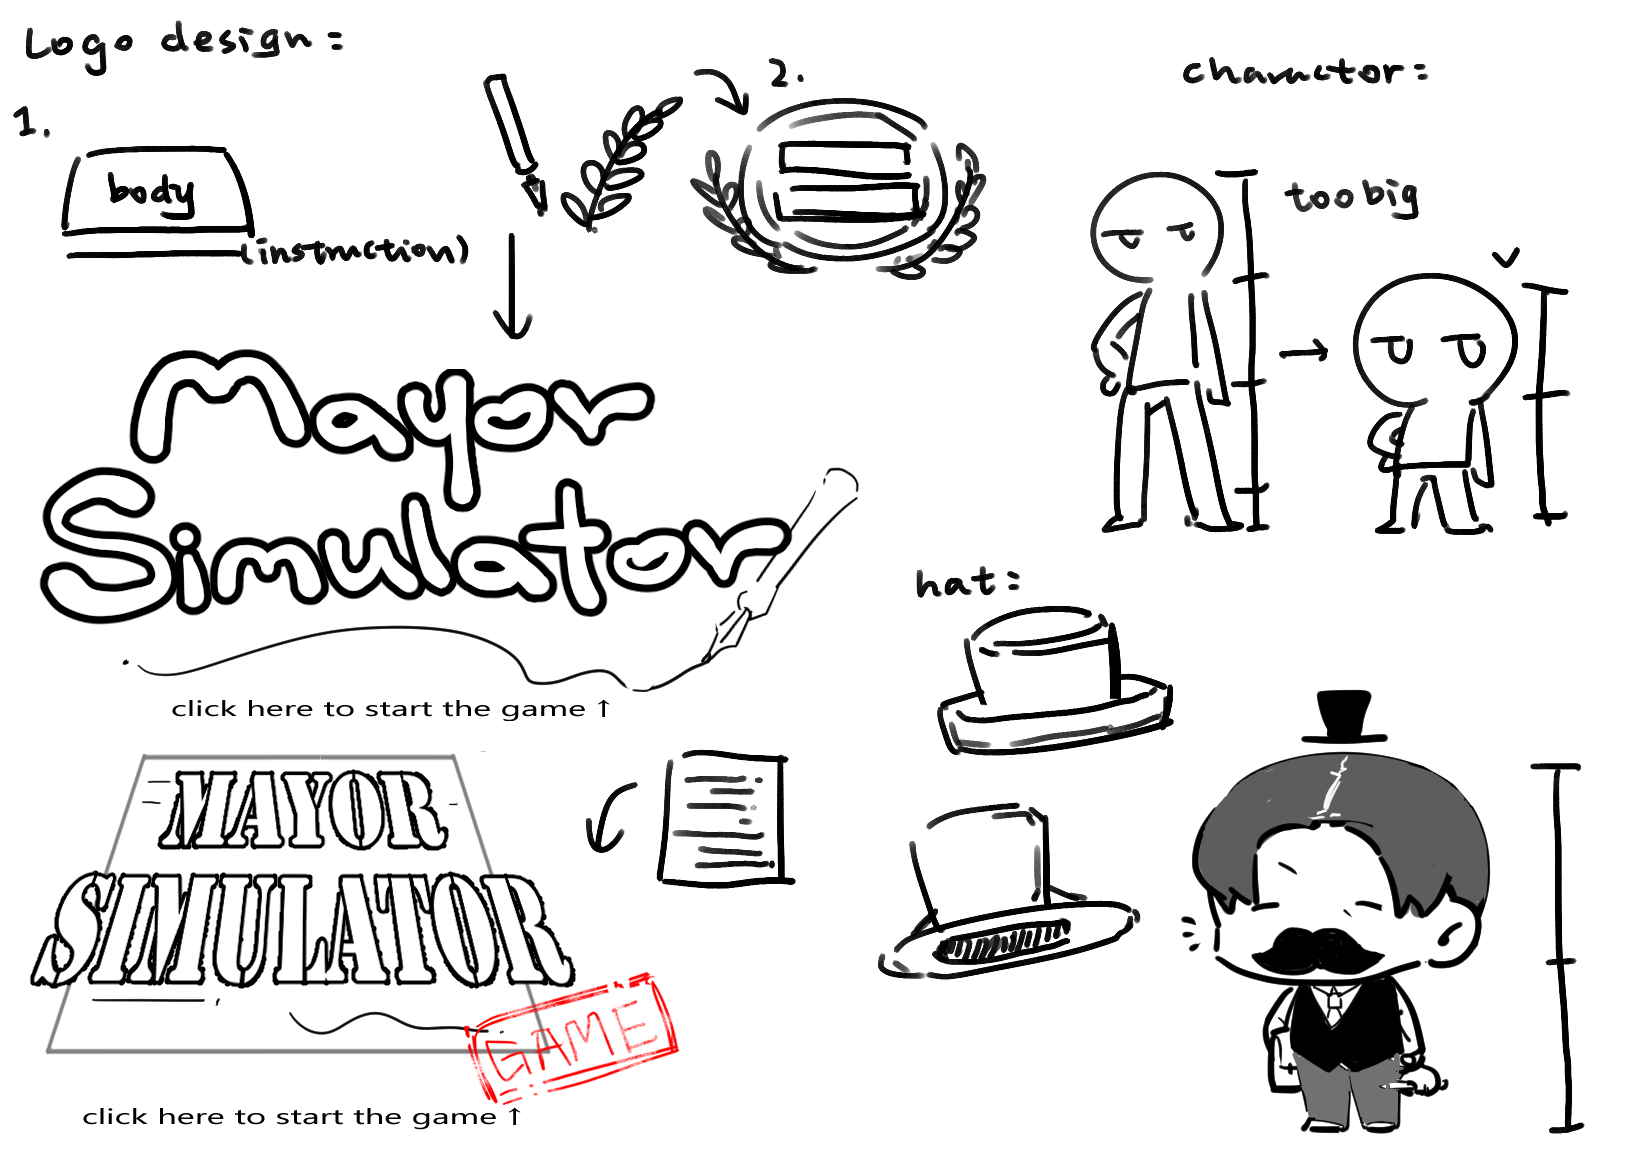 Logo design:
1.
body
(instruction)
2.
Mayor
Simulator
click here to start the game ↑
MAYOR
SIMULATOR
GAME
click here to start the game ↑
charactor:
too big
hat: